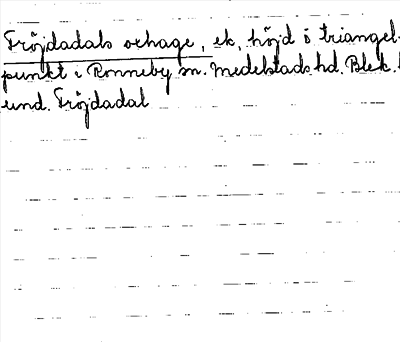 Fröjdadals oxhage, ek, höjd ö triangel-
punkt i Ronneby sn. Medelstads hd. Blek.
und. Fröjdadal